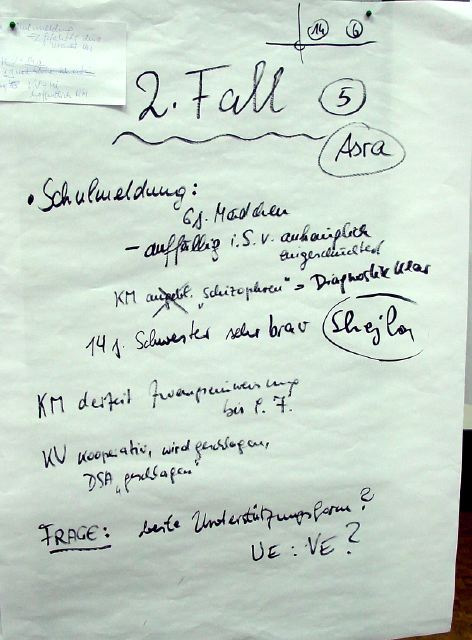 14 6
2. Fall 5
Asra
• Schulmeldung:
6j. Mädchen
- auffällig i.S.v. anhänglich
eingeschüchtert
KM angebl. "schizophren" = Diagnostik klar
14j. Schwester sehr brav Shejla
KM derzeit Zwangseinweisung
bis 7.
KV kooperativ, wird geschlagen,
DSA "geschlagen"
FRAGE: beste Unterstützungsform?
UE : VE?